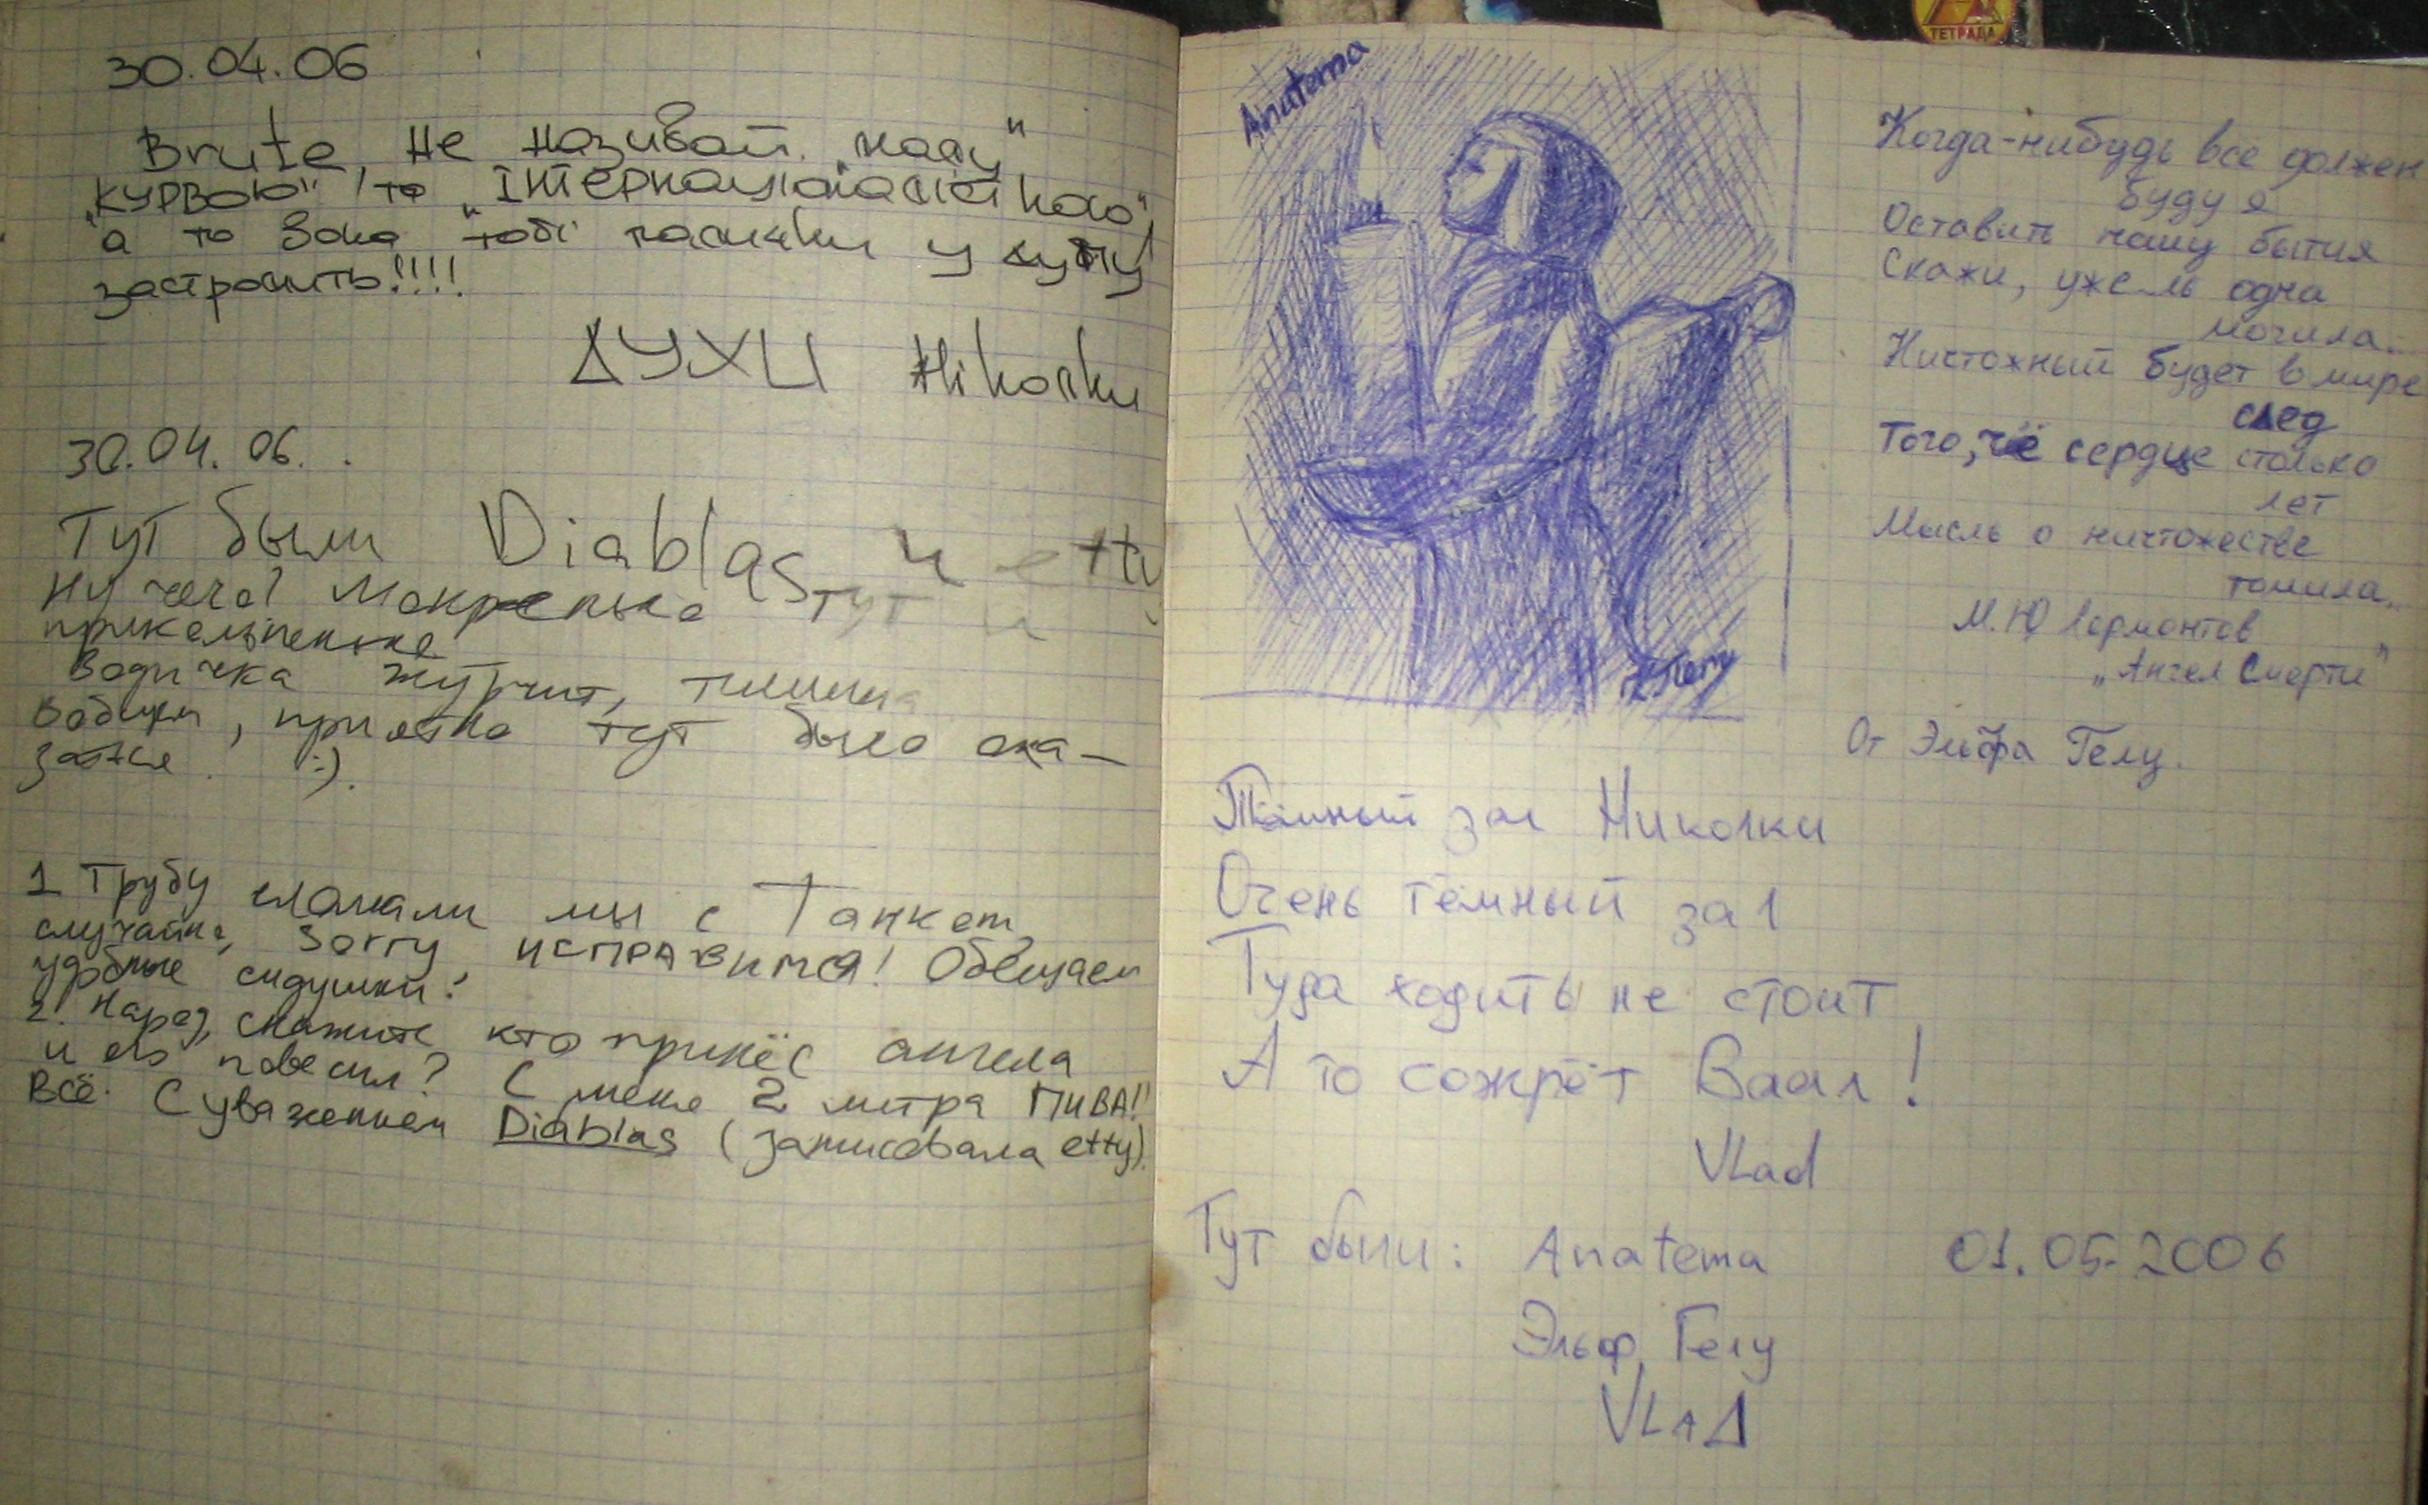 30.04.06
Brute, не називай „
„КУРВОЮ", то
а то вона тобі у
застромить!!!!
ДУХИ Нікольки
30.04.06.
Тут были Diablas и etty
Ну чего? Мокренько тут и
прикольненько
Водичка журчит, тишина
вобщем, приятно тут было ока-
затся. :).
1 Трубу сломали мы с Танкем
случайно, sorry исправимся! Обещаем
удобные сидушки!
2. Народ, скажите кто принёс ангела
и его повесил? С меня 2 литра ПИВА!!
Всё. С уважением Diablas (записовала etty).
Anatema
Гелу
Когда-нибудь всё должен
буду я
Оставить чашу бытия
Скажи, ужель одна
могила
Ничтожный будет в мире
след
Того, чьё сердце столько
лет
Мысль о ничтожестве
томила..
М.Ю Лермонтов
„Ангел Смерти"
От Эльфа Гелу.
Тёмный зал Николки
Очень тёмный зал
Туда ходить не стоит
А то сожрёт Ваал!
VLad
Тут были: Anatema 01.05.2006
Эльф Гелу
VLAД
ТЕТРАДА